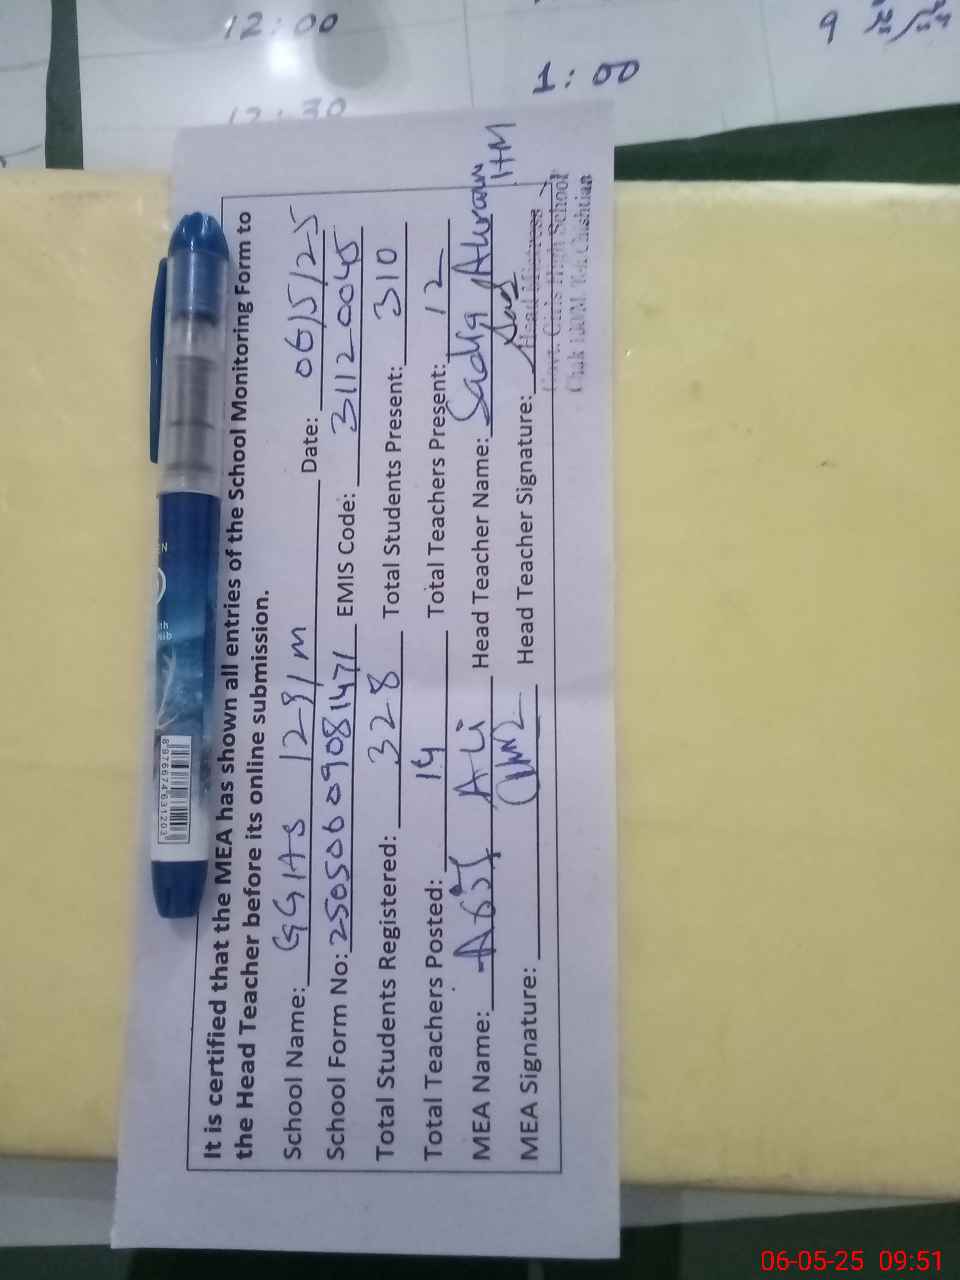 12:00
1:00
12:30
It is certified that the MEA has shown all entries of the School Monitoring Form to
the Head Teacher before its online submission.
School Name: GGHS 129/M Date: 06/5/25
School Form No: 25050609081471 EMIS Code: 31120045
Total Students Registered: 328 Total Students Present: 310
Total Teachers Posted: 14 Total Teachers Present: 12
MEA Name: Asif Ali Head Teacher Name: Sadia Akram
HM
MEA Signature: Head Teacher Signature:
Head Mistress
Govt. Girls High School
Chak Teh Chishtian
8976674631203
06-05-25 09:51